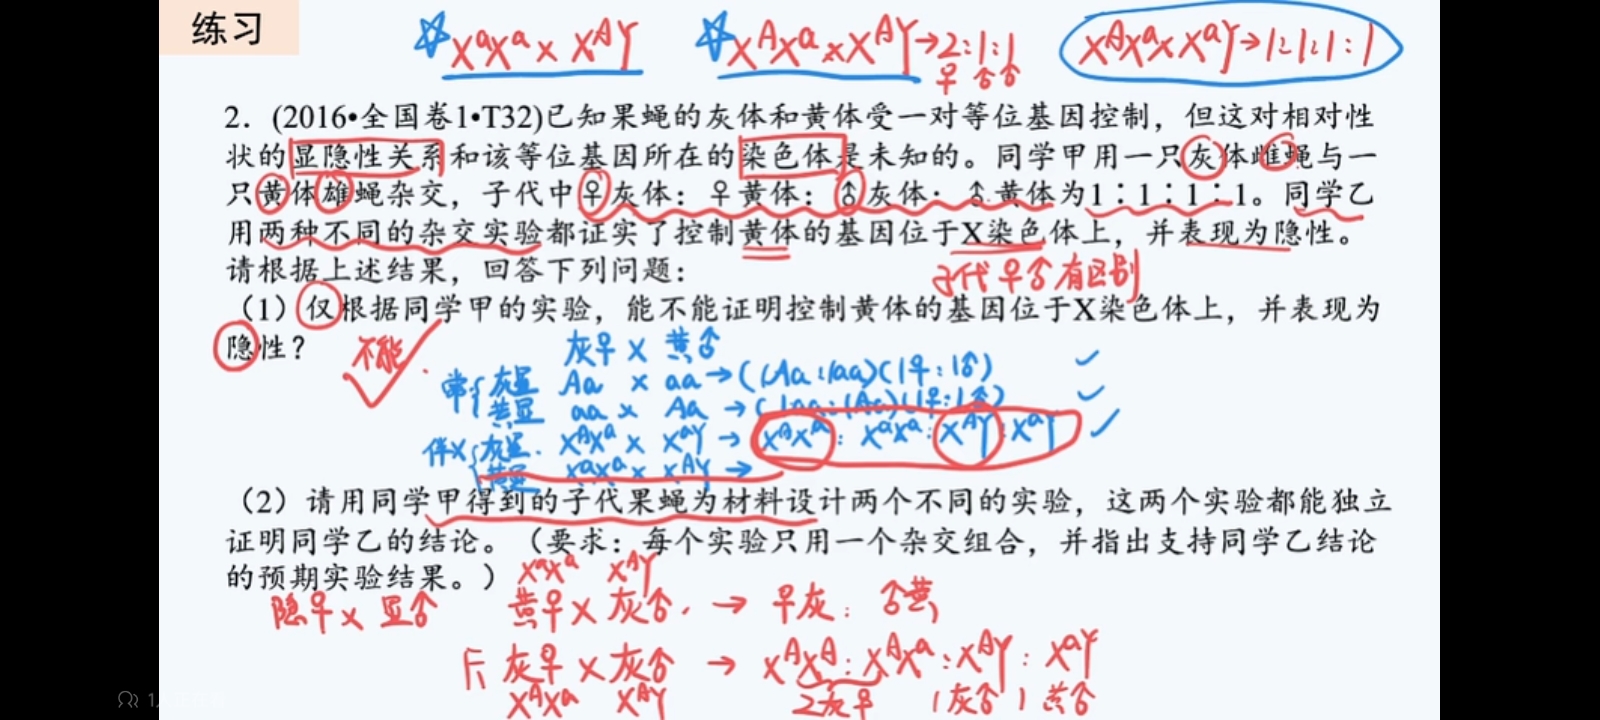 练习
☆XᵃXᵃ × XᴬY ☆XᴬXᵃ × XᴬY→2:1:1 XᴬXᵃ × XᵃY→1:1:1:1
♀ 含含
2．(2016•全国卷1•T32)已知果蝇的灰体和黄体受一对等位基因控制，但这对相对性
状的显隐性关系和该等位基因所在的染色体是未知的。同学甲用一只灰体雌蝇与一
只黄体雄蝇杂交，子代中♀灰体：♀黄体：♂灰体：♂黄体为1∶1∶1∶1。同学乙
用两种不同的杂交实验都证实了控制黄体的基因位于X染色体上，并表现为隐性。
请根据上述结果，回答下列问题：
子代♀♂有区别
（1）仅根据同学甲的实验，能不能证明控制黄体的基因位于X染色体上，并表现为
隐性？
不能
灰♀ × 黄♂
常{灰显 Aa × aa→(1Aa:1aa)(1♀:1♂) ✓
黄显 aa × Aa →(1aa:1Aa)(1♀:1♂) ✓
伴X{灰显. XᴬXᵃ × XᵃY → XᴬXᵃ : XᵃXᵃ : XᴬY : XᵃY ✓
黄显 XᵃXᵃ × XᴬY →
（2）请用同学甲得到的子代果蝇为材料设计两个不同的实验，这两个实验都能独立
证明同学乙的结论。（要求：每个实验只用一个杂交组合，并指出支持同学乙结论
的预期实验结果。）
XᵃXᵃ XᴬY
隐♀ × 显♂ 黄♀ × 灰♂. → ♀灰: ♂黄
F₁ 灰♀ × 灰♂ → XᴬXᴬ : XᴬXᵃ : XᴬY : XᵃY
XᴬXᵃ XᴬY 2灰♀ 1灰♂ 1黄♂